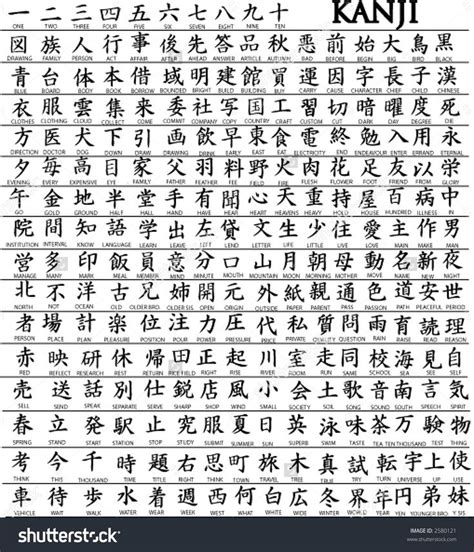 一 二 三 四 五 六 七 八 九 十 KANJI
ONE TWO THREE FOUR FIVE SIX SEVEN EIGHT NINE TEN
図 族 人 行 事 後 先 答 品 秋 悪 前 始 大 鳥 黒
DRAWING FAMILY PERSON ACT AFFAIR AFTER AHEAD ANSWER ARTICLE AUTUMN BAD BEFORE BEGIN BIG BIRD BLACK
青 台 体 本 借 域 明 建 館 買 運 因 字 長 子 漢
BLUE BOARD BODY BOOK BORROW BOUNDED BRIGHT BUILD BUILDING BUY CARRY CAUSE CHARACTER CHIEF CHILD CHINESE
衣 服 雲 集 来 委 社 写 国 工 習 切 暗 曜 度 死
CLOTHES CLOTHING CLOUD COLLECT COME COMMIT COMPANY COPY COUNTRY CRAFT CUSTOM CUT DARK DAY DEGREE DIE
方 医 犬 下 引 画 飲 早 東 食 電 終 勉 入 用 永
DIRECTION DOCTOR DOG DOWN DRAW DRAWING DRINK EARLY EAST EAT ELECTRICITY END ENDEAVOUR ENTER ERRAND ETERNAL
夕 毎 高 目 家 父 羽 料 野 火 肉 花 足 友 以 栄
EVENING EVERY EXPENSIVE EYE FAMILY FATHER FEATHER FEE FIELD FIRE FLESH FLOWER FOOT FRIEND GLORY
午 金 地 半 堂 手 有 聞 心 天 重 屋 百 病 中
GO GOLD GROUND HALF HALL HAND HAVE HEAR HEART HEAVENS HEAVY HOLY HOUSE HUNDRED ILLNESS IN
院 間 知 語 学 出 左 貸 文 生 少 住 愛 主 作 男
INSTITUTION INTERVAL KNOW LANGUAGE LEARN LEAVE LEFT LEND LETTER LIFE LITTLE LIVE LOVE MAIN MAKE MAN
営 多 印 飯 員 意 分 口 山 月 朝 母 動 名 新 夜
MANAGE MANY MARK MEAL MEMBER MIND MINUTE MOUTH MOUNTAIN MOON MORNING MOTHER MOVE NAME NEW NIGHT
北 不 洋 古 兄 姉 開 元 外 紙 親 通 色 道 安 世
NORTH NOT OCEAN OLD OLDER BRO. OLDER SIS. OPEN ORIGIN OUTSIDE PAPER PARENT PASS PASSION PATH PEACE PERIOD
者 場 計 楽 位 注 圧 力 京 私 質 問 雨 読 理
PERSON PLACE PLAN PLEASURE POSITION POUR PRESSURE POWER PRIVATE QUALITY QUESTION RAIN READ REASON
赤 映 研 休 帰 田 正 起 川 室 走 同 校 海 見 自
RED REFLECT RESEARCH REST RETURN RICE FIELD RIGHT RISE RIVER ROOM RUN SAME SCHOOL SEA SEE SELF
売 送 話 歩 仕 鋭 店 風 小 会 土 歌 音 言 気
SELL SEND SPEAK SERVE SHARP SHOP SMALL SOCIETY SOIL SONG SOUND SOUTH SPEECH SPIRIT
春 立 発 駅 止 究 服 夏 日 英 泳 味 茶 万 験 物
SPRING STAND START STATION STOP STUDY SUMMER SUN SWIM TASTE TEA TEN THOUSAND TEST THING
考 今 千 時 題 右 思 町 旅 木 真 試 転 宇 上 使
THINK THIS THOUSAND TIME TITLE THINK TOWN TREE TRUE TURN UP USE
車 待 歩 水 道 週 西 何 白 冬 界 年 円 弟 妹
VEHICLE WAIT WALK WATER WAY WEEK WEST WHAT WHITE WINTER WORLD YEAR YEN YOUNGER BRO. YOUNGER SIS.
shutterstock
IMAGE ID: 2580121
www.shutterstock.com